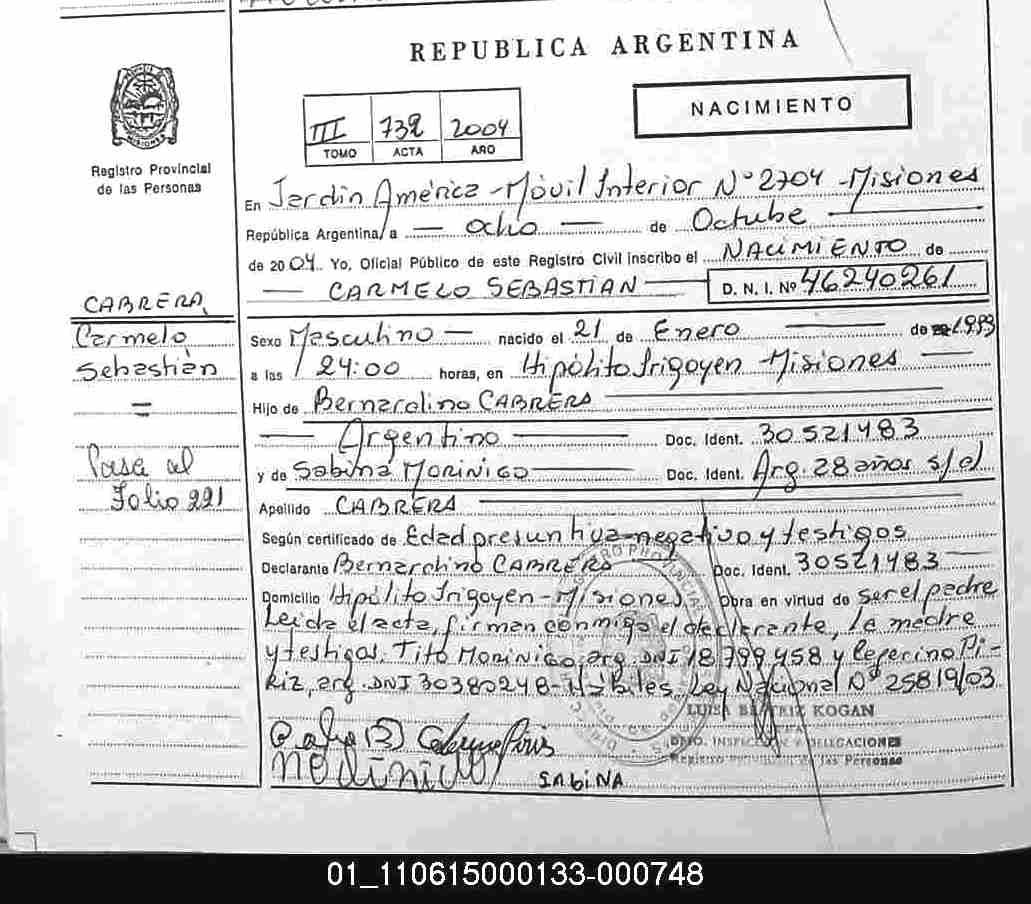 REPUBLICA ARGENTINA
NACIMIENTO
III 732 2004
TOMO ACTA AÑO
Registro Provincial
de las Personas
En Jardín América - Móvil Interior N° 2704 - Misiones
República Argentina, a — ocho — de Octube —
de 2004. Yo, Oficial Público de este Registro Civil inscribo el NACIMIENTO de
— CARMELO SEBASTIAN — D. N. I. Nº 46240261
CABRERA,
Carmelo
Sebastián
=
Pasa al
Folio 221
Sexo Masculino — nacido el 21 de Enero — de 1.999
a las 24:00 horas, en Hipólito Irigoyen - Misiones —
Hijo de Bernardino CABRERA
— Argentino — Doc. Ident. 30521483
y de Sabina MORINIGO — Doc. Ident. Arg. 28 años s/el
Apellido CABRERA
Según certificado de Edad presuntiva - negativo y testigos
Declarante Bernardino CABRERA Doc. Ident. 30521483
Domicilio Hipólito Irigoyen - Misiones Obra en virtud de ser el padre
Leída el acta, firman conmigo el declarante, la madre
y testigos. Tito MORINIGO, arg. DNI 18.799.458 y Ceferino Pi-
riz, arg. DNI 30380248 - Hábiles. Ley Nacional N° 25819/03.
LUISA BEATRIZ KOGAN
DPTO. INSPECCION Y DELEGACIONES
Registro Provincial de las Personas
SABINA
01_110615000133-000748